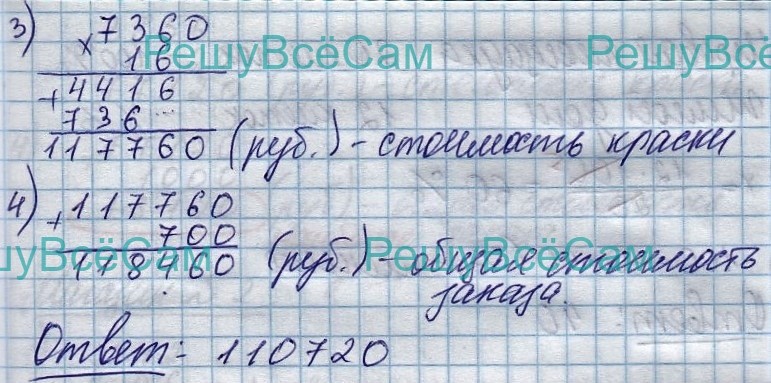 3) × 7360
РешуВсёСам РешуВсёСам
16
+ 4416
736
117760 (руб.) - стоимость краски
4) + 117760
700
шуВсёСам РешуВсёСам
118460 (руб.) - общая стоимость
заказа.
Ответ: 110720